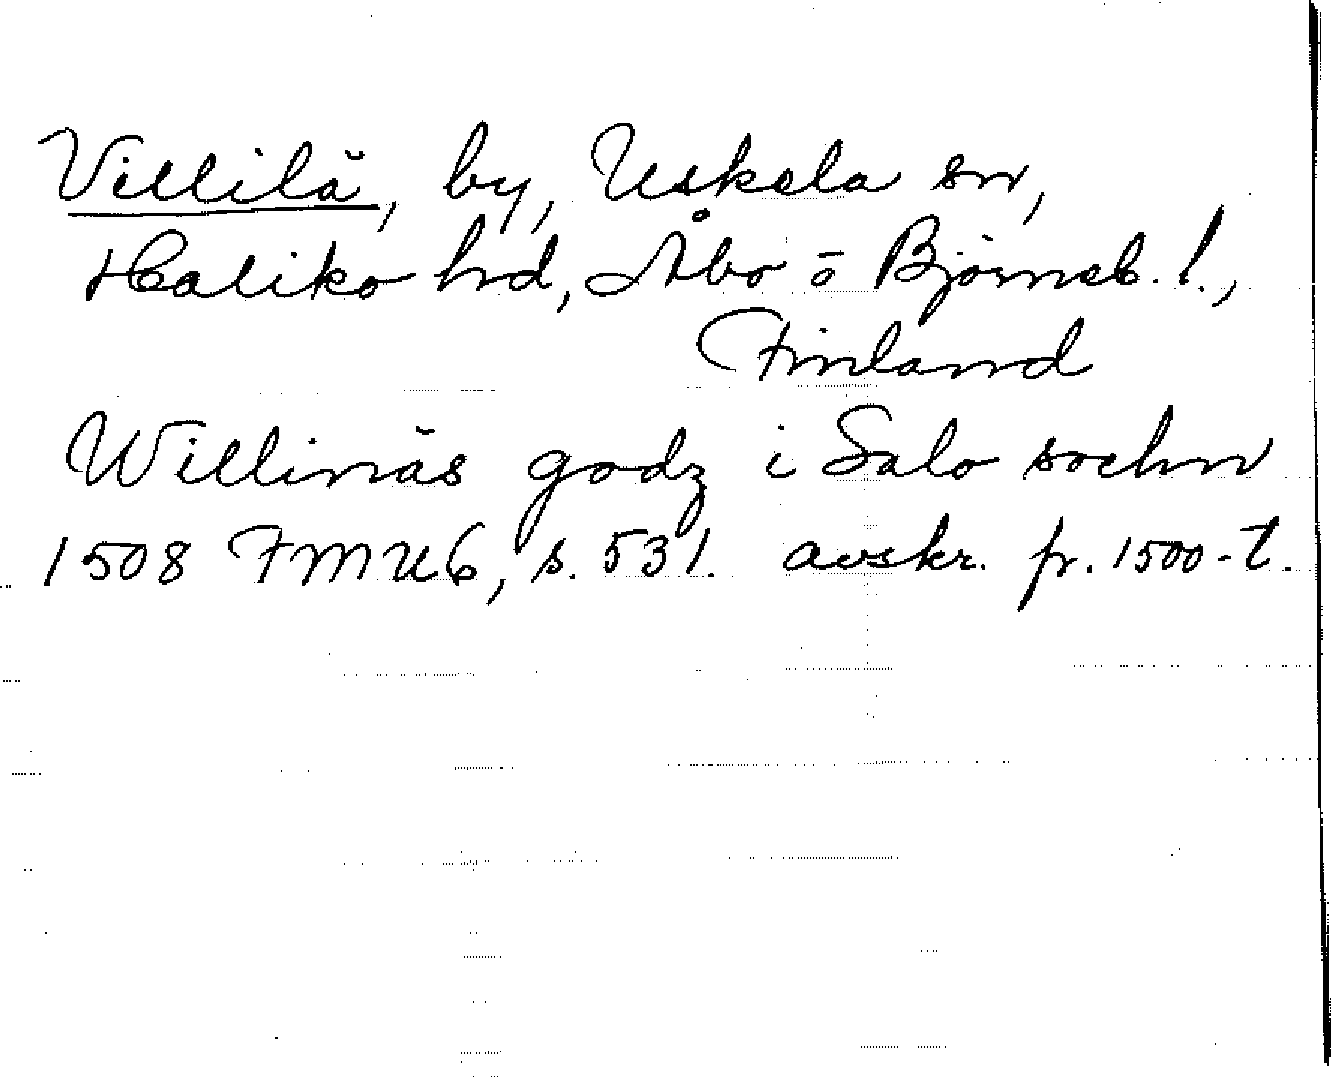 Villilä, by, Uskela sn,
Haliko hd, Åbo o Björneb. l.,
Finland
Willinäs godz i Salo sochn
1508 FMU6, s. 531. avskr. fr. 1500-t.